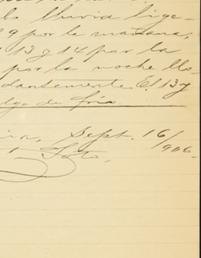 lo lluvia lige-
9 por la mañana,
13 y 14 por la
por la noche llo-
dantemente. El 13 y
algo de frío.
Sept. 16/906.